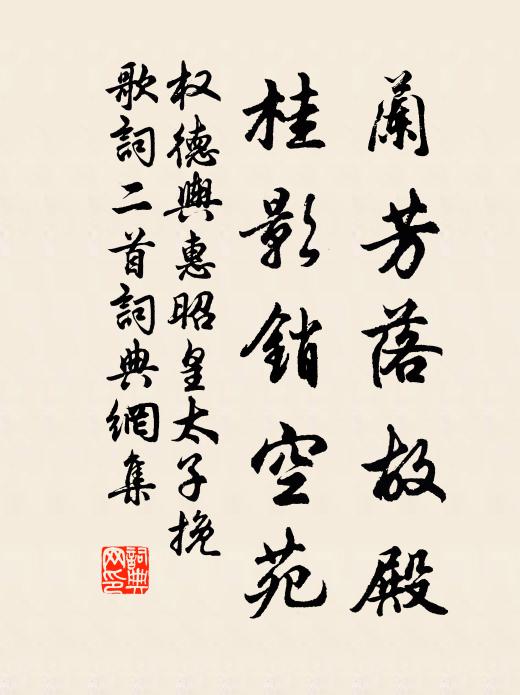 蘭芳落故殿
桂影銷空苑
权德輿惠昭皇太子挽
歌詞二首詞典網集
詞典网印